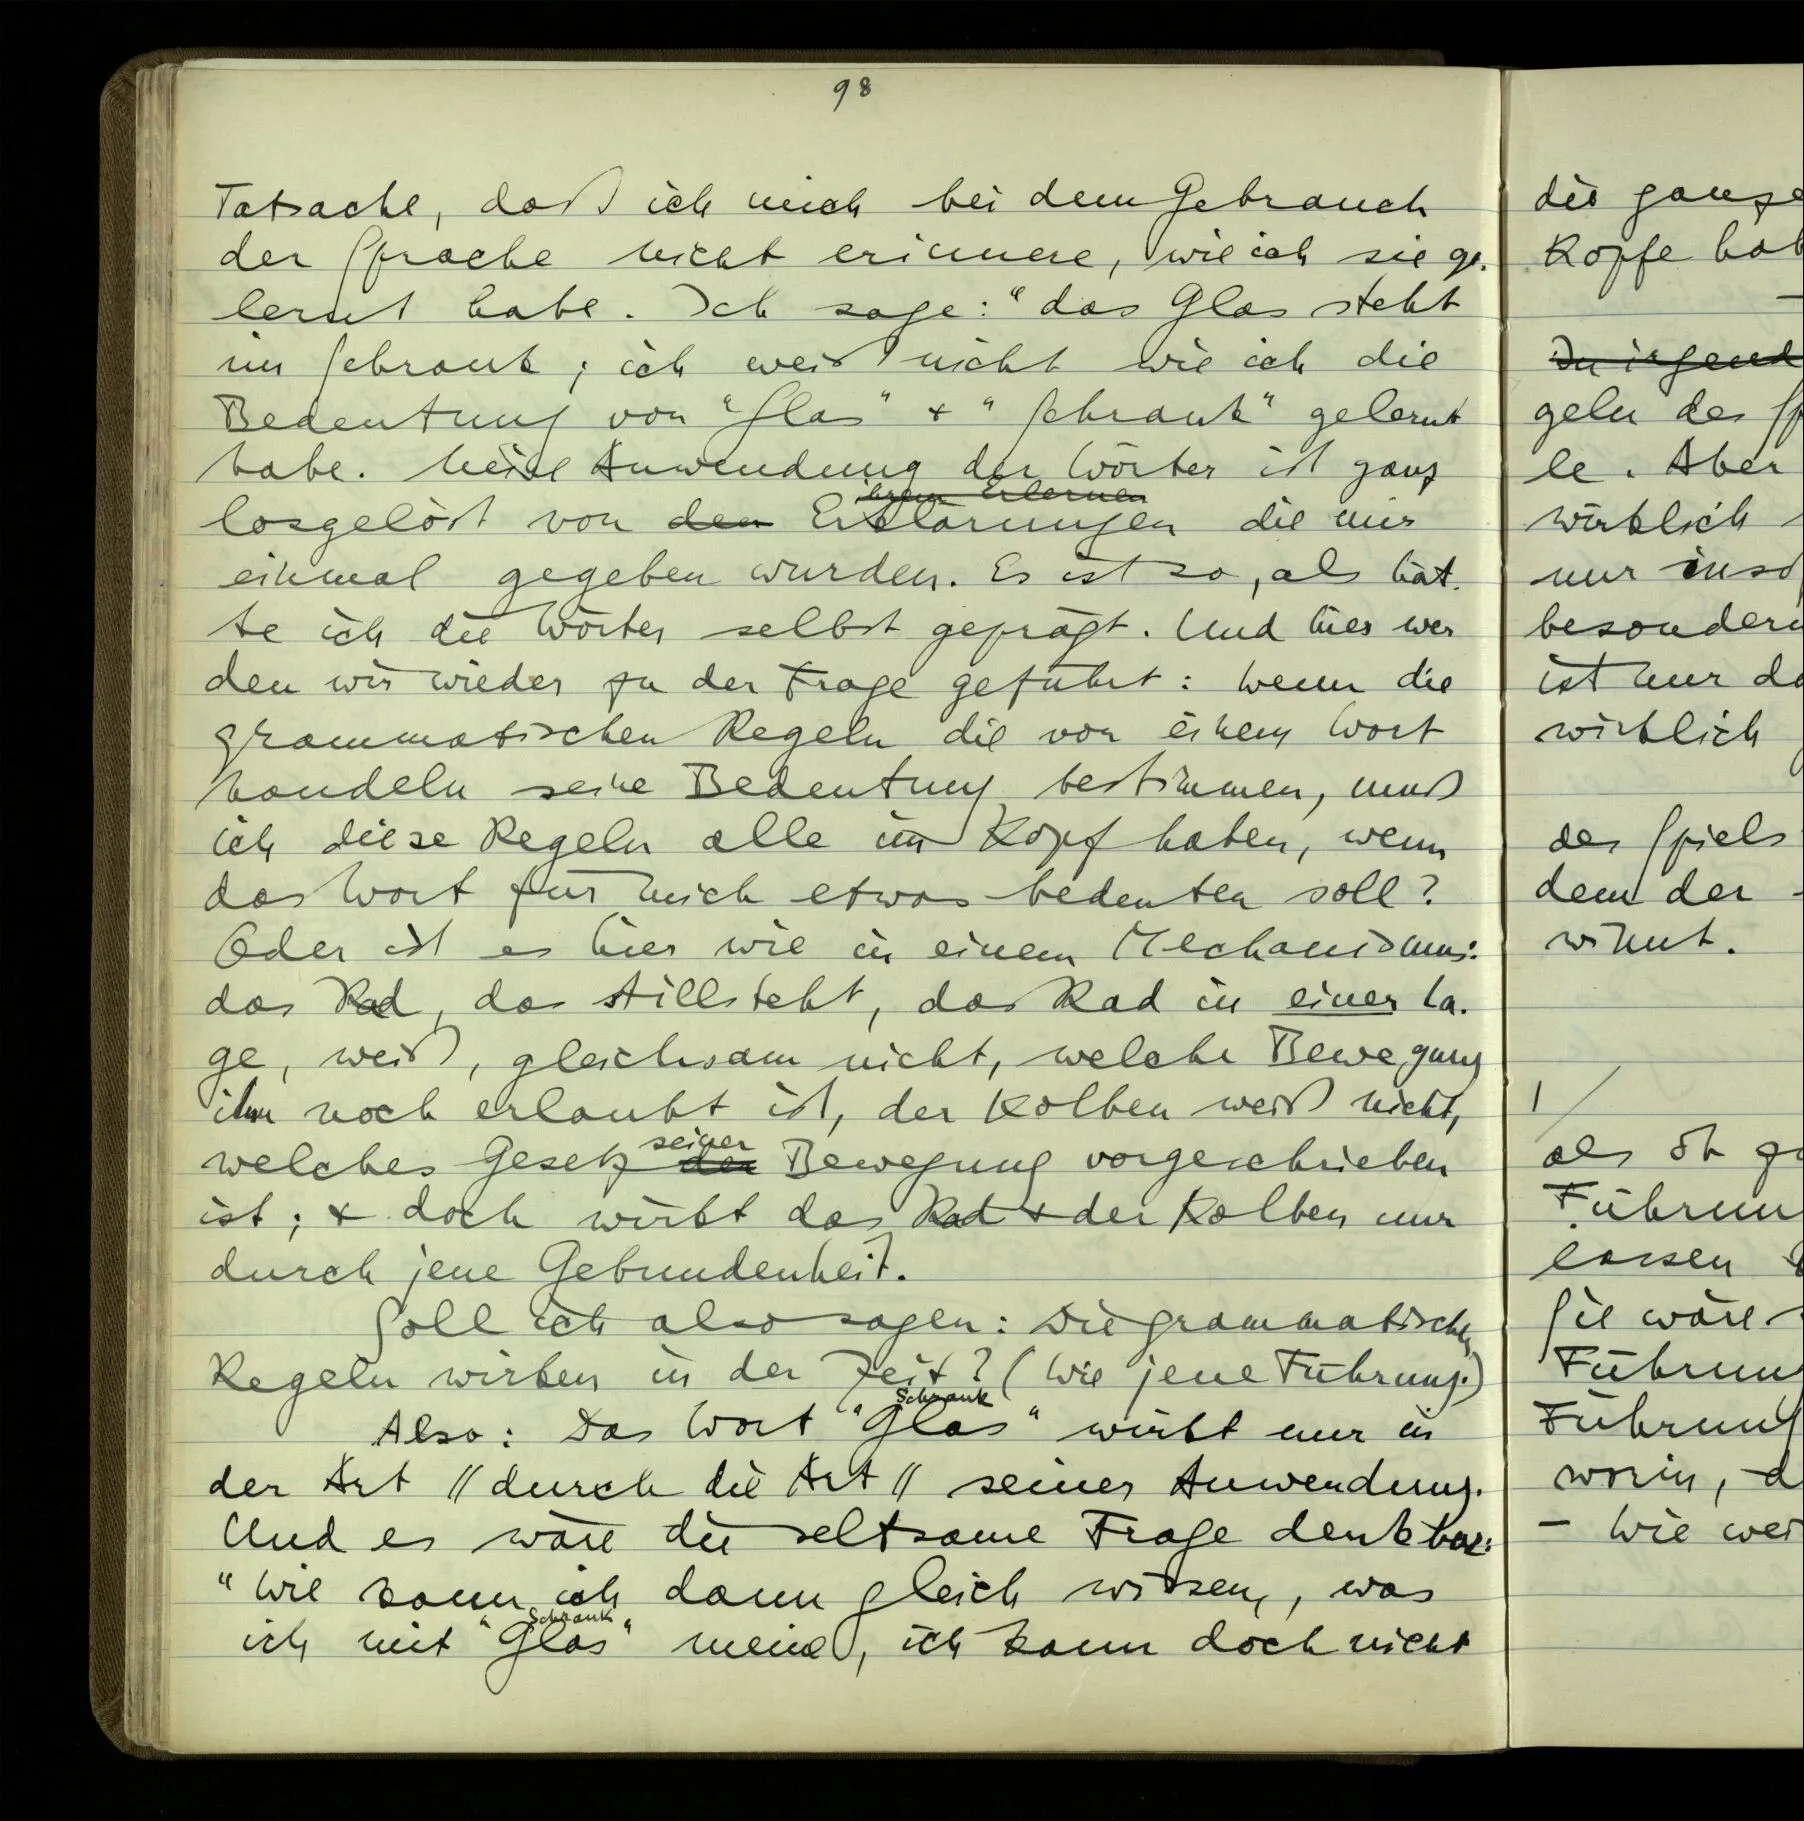 98
Tatsache, daß ich mich bei dem Gebrauch
der Sprache nicht erinnere, wie ich sie ge-
lernt habe. Ich sage: "das Glas steht
im Schrank; ich weiß nicht wie ich die
Bedeutung von "Glas" & "Schrank" gelernt
habe. Meine Anwendung der Wörter ist ganz
ihrem Erlernen
losgelöst von den Erklärungen die mir
einmal gegeben wurden. Es ist so, als hät-
te ich die Wörter selbst geprägt. Und hier wer
den wir wieder zu der Frage geführt: Wenn die
grammatischen Regeln die von einem Wort
handeln seine Bedeutung bestimmen, muß
ich diese Regeln alle im Kopf haben, wenn
das Wort für mich etwas bedeuten soll?
Oder ist es hier wie in einem Mechanismus:
das Rad, das stillsteht, das Rad in einer La-
ge, weiß, gleichsam nicht, welche Bewegung
ihm noch erlaubt ist, der Kolben weiß nicht,
seiner
welches Gesetz der Bewegung vorgeschrieben
ist; & doch wirkt das Rad & der Kolben nur
durch jene Gebundenheit.
Soll ich also sagen: Die grammatischen
Regeln wirken in der Zeit? (Wie jene Führung.)
Schrank
Also: Das Wort "Glas" wirkt nur in
der Art // durch die Art // seiner Anwendung.
Und es wäre die seltsame Frage denkbar:
"Wie kann ich dann gleich wissen, was
Schrank
ich mit "Glas" meine, ich kann doch nicht
die ganze
Kopfe hab
–
In irgend
geln des Sp
le. Aber
wirklich
nur inso
besondern
ist nur da
wirklich
des Spiels
dem der –
winnt.
1 /
als ob
Führun
lassen
Sie wäre
Führung
Führung
worin, d
– Wie wei